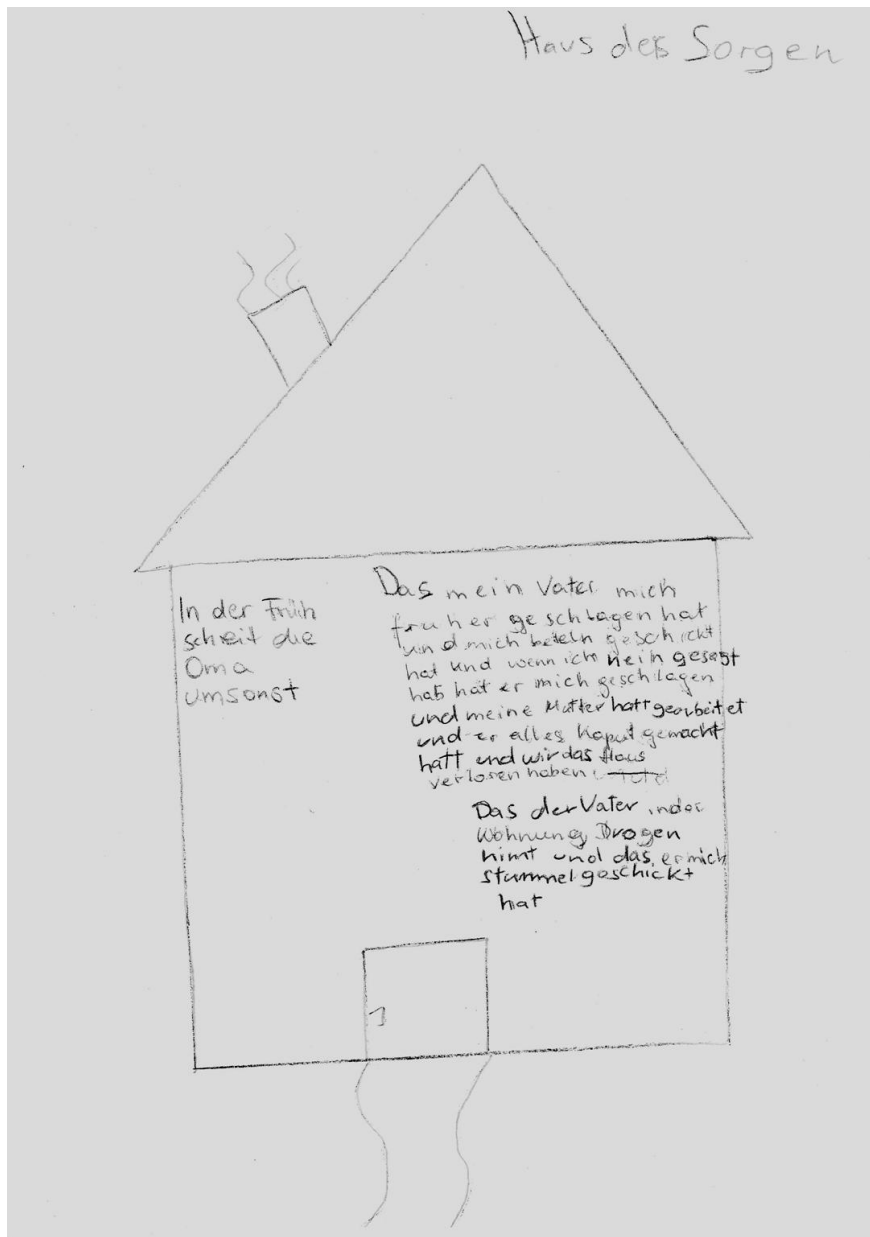 Haus der Sorgen
In der Früh
schreit die
Oma
umsonst
Das mein Vater mich
früher geschlagen hat
und mich beteln geschickt
hat und wenn ich nein gesagt
hab hat er mich geschlagen
und meine Mutter hatt gearbeitet
und er alles kaput gemacht
hatt und wir das Haus
verloren haben
Das der Vater in der
Wohnung Drogen
nimt und das er mich
stummel geschickt
hat